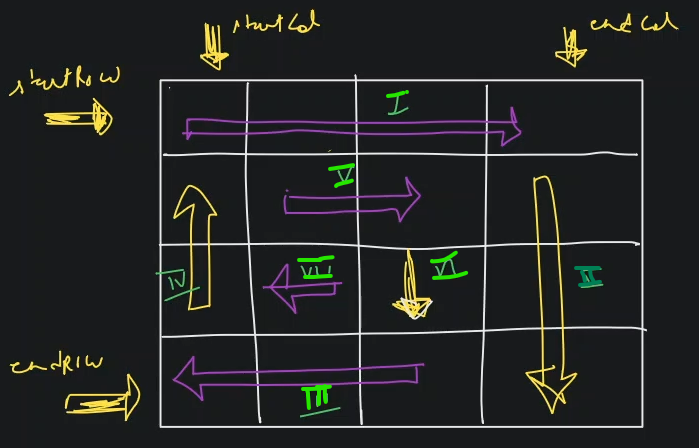 startCol
endCol
startRow
I
V
IV
VII
VI
II
endRow
III